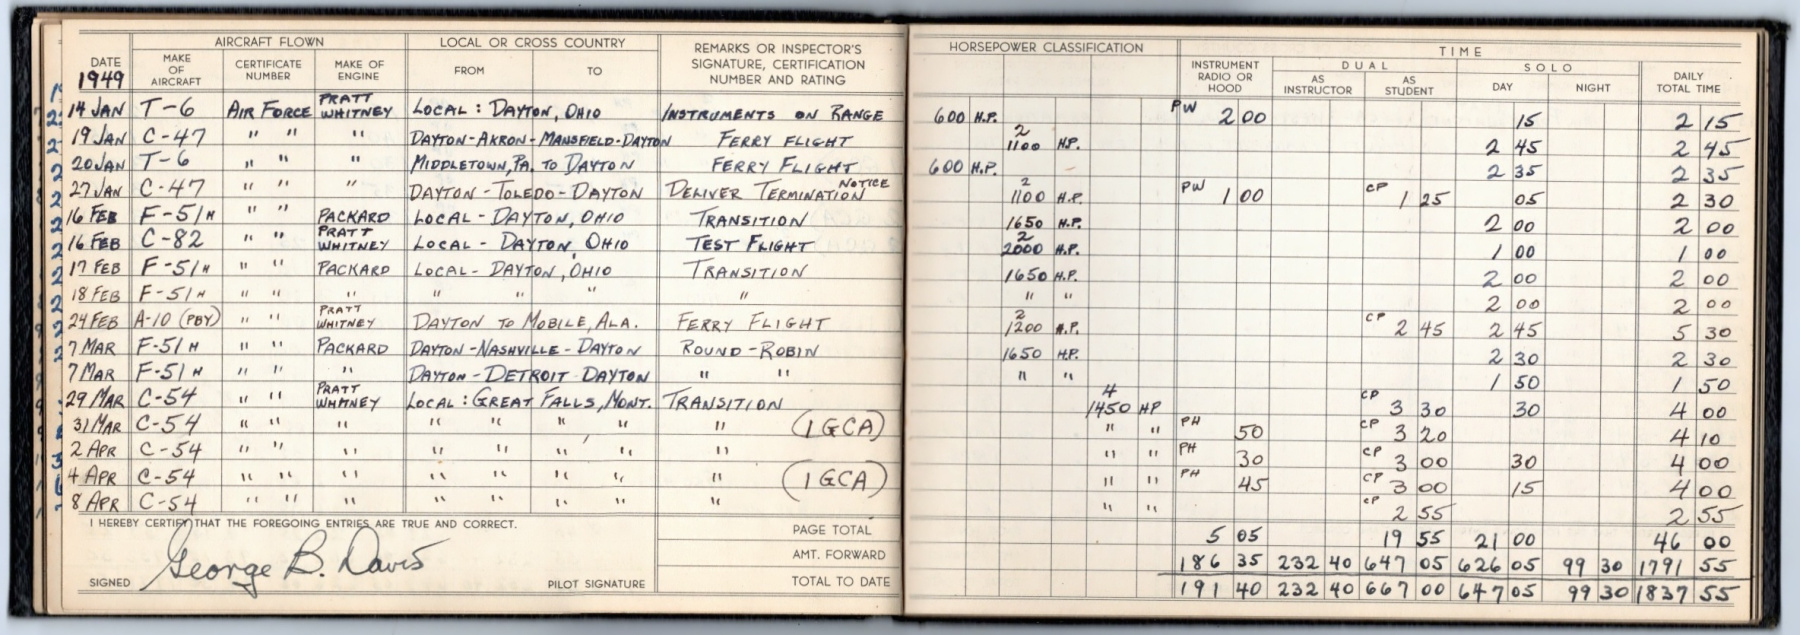 AIRCRAFT FLOWN LOCAL OR CROSS COUNTRY REMARKS OR INSPECTOR'S SIGNATURE, CERTIFICATION NUMBER AND RATING HORSEPOWER CLASSIFICATION TIME
DATE 1949 MAKE OF AIRCRAFT CERTIFICATE NUMBER MAKE OF ENGINE FROM TO INSTRUMENT RADIO OR HOOD DUAL AS INSTRUCTOR AS STUDENT SOLO DAY NIGHT DAILY TOTAL TIME
14 JAN T-6 AIR FORCE PRATT WHITNEY LOCAL: DAYTON, OHIO INSTRUMENTS ON RANGE 600 H.P. PW 2 00 15 2 15
19 JAN C-47 " " " DAYTON-AKRON-MANSFIELD-DAYTON FERRY FLIGHT 2 1100 H.P. 2 45 2 45
20 JAN T-6 " " " MIDDLETOWN, PA. TO DAYTON FERRY FLIGHT 600 H.P. 2 35 2 35
27 JAN C-47 " " " DAYTON-TOLEDO-DAYTON DELIVER TERMINATION NOTICE 2 1100 H.P. PW 1 00 CP 1 25 05 2 30
16 FEB F-51H " " PACKARD LOCAL-DAYTON, OHIO TRANSITION 1650 H.P. 2 00 2 00
16 FEB C-82 " " PRATT WHITNEY LOCAL-DAYTON, OHIO TEST FLIGHT 2 2000 H.P. 1 00 1 00
17 FEB F-51H " " PACKARD LOCAL-DAYTON, OHIO TRANSITION 1650 H.P. 2 00 2 00
18 FEB F-51H " " " " " " " " " 2 00 2 00
24 FEB A-10 (PBY) " " PRATT WHITNEY DAYTON TO MOBILE, ALA. FERRY FLIGHT 2 1200 H.P. CP 2 45 2 45 5 30
7 MAR F-51H " " PACKARD DAYTON-NASHVILLE-DAYTON ROUND-ROBIN 1650 H.P. 2 30 2 30
7 MAR F-51H " " " DAYTON-DETROIT DAYTON " " " " 1 50 1 50
29 MAR C-54 " " PRATT WHITNEY LOCAL: GREAT FALLS, MONT. TRANSITION 4 1450 HP CP 3 30 30 4 00
31 MAR C-54 " " " " " " " " (1 GCA) " " PH 50 CP 3 20 4 10
2 APR C-54 " " " " " " " " " " PH 30 CP 3 00 30 4 00
4 APR C-54 " " " " " " " " (1 GCA) " " PH 45 CP 3 00 15 4 00
8 APR C-54 " " " " " " " " " " CP 2 55 2 55
I HEREBY CERTIFY THAT THE FOREGOING ENTRIES ARE TRUE AND CORRECT. PAGE TOTAL 5 05 19 55 21 00 46 00
George B. Davis AMT. FORWARD 186 35 232 40 647 05 626 05 99 30 1791 55
SIGNED PILOT SIGNATURE TOTAL TO DATE 191 40 232 40 667 00 647 05 99 30 1837 55